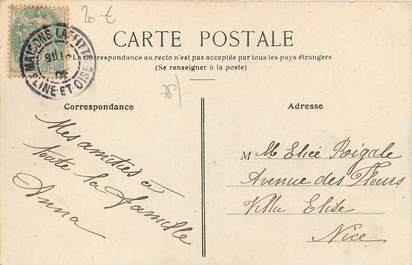 20 €
CARTE POSTALE
La Correspondance au recto n'est pas acceptée par tous les pays étrangers
(Se renseigner à la poste)
MAISONS LAFFITTE
SEINE ET OISE
78)
Correspondance
Adresse
Mes amitiés à
toute la famille
Anna
M Elice Rigale
Avenue des Fleurs
Villa Elise
Nice